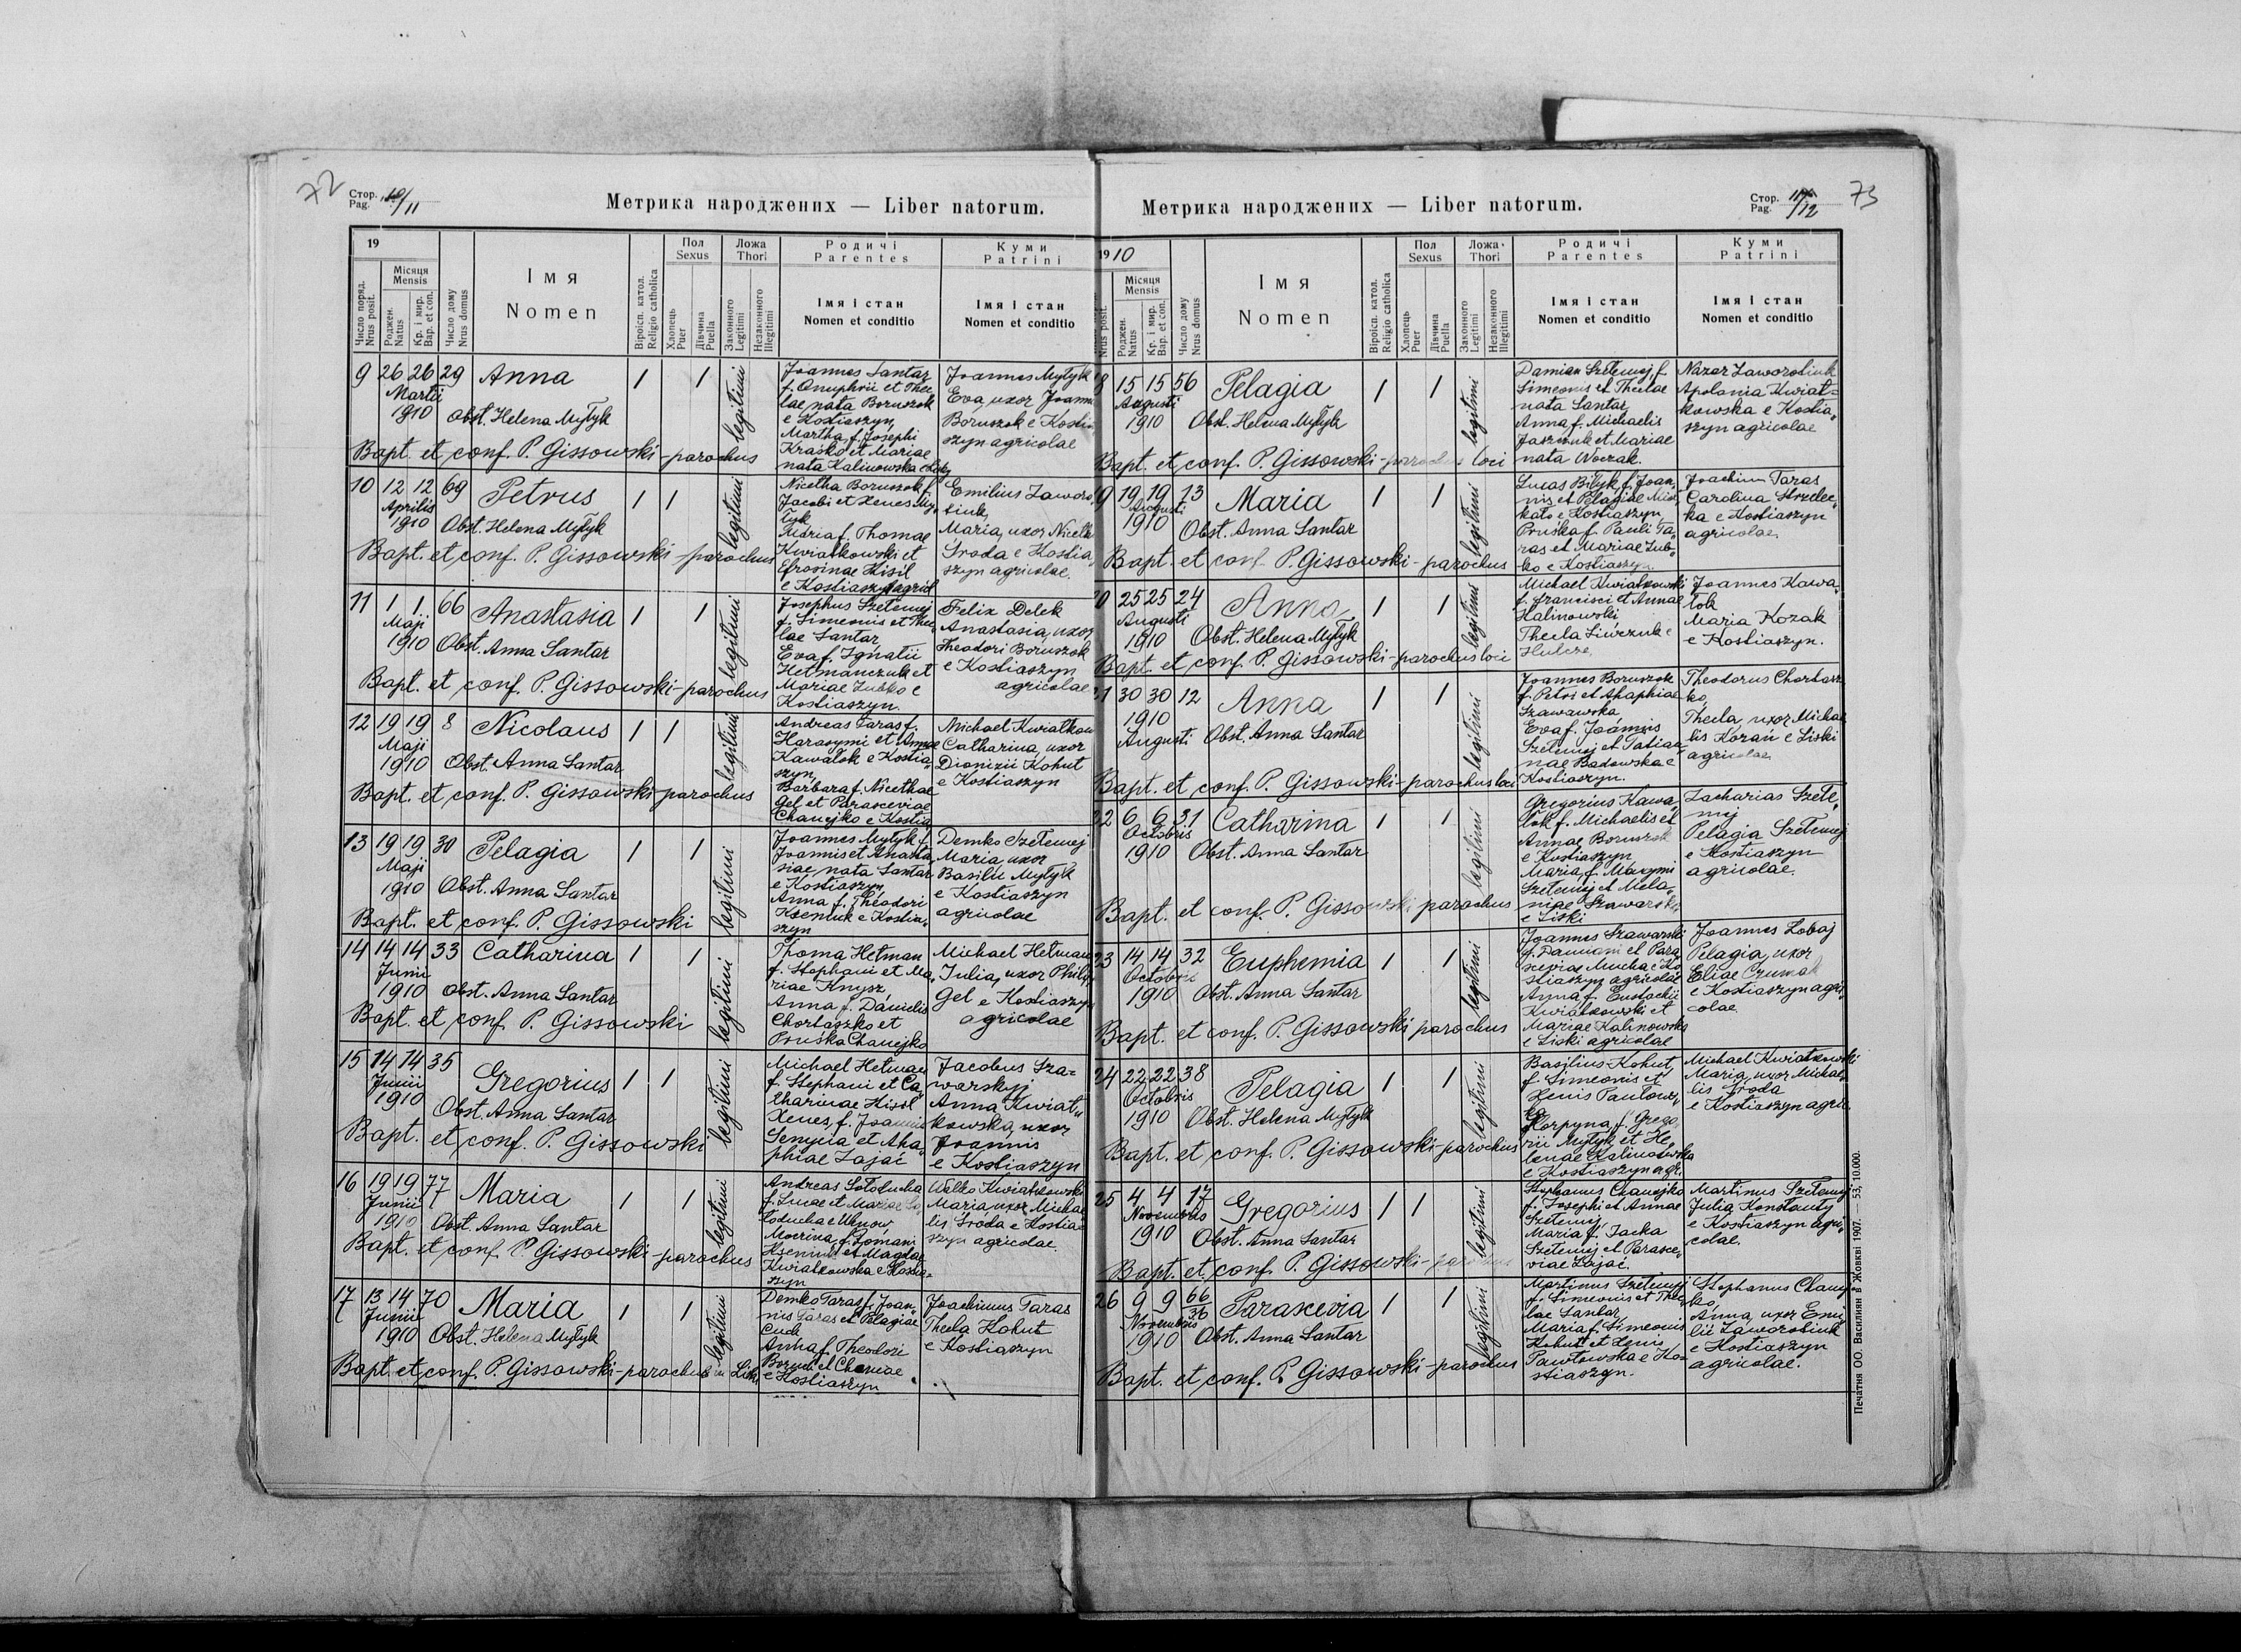 72
Стор.
Pag. 10/11
Метрика народжених — Liber natorum.
19
Число поряд.
Nrus posit.
Місяця
Mensis
Роджен.
Natus
Кр. і мир.
Bap. et con.
Число дому
Nrus domus
Імя
Nomen
Віроісп. катол.
Religio catholica
Пол
Sexus
Хлопець
Puer
Дівчина
Puella
Ложа
Thori
Законного
Legitimi
Незаконного
Illegitimi
Родичі
Parentes
Імя і стан
Nomen et conditio
Куми
Patrini
Імя і стан
Nomen et conditio
9 26 26 29 Anna 1 1 legitimi
Martii
1910 Obst. Helena Mytyk
Bapt. et conf. P. Gissowski - parochus
Joannes Santar
f. Onuphrii et Thec
lae nata Boruszok
e Kostiaszyn,
Martha f. Josephi
Krasko et Mariae
nata Kalinowska
Joannes Mytyk
Eva, uxor Joannis
Boruszok e Kostia
szyn agricolae
10 12 12 69 Petrus 1 1 legitimi
Aprilis
1910 Obst. Helena Mytyk
Bapt. et conf. P. Gissowski - parochus
Nicetha Boruszok f.
Jacobi et Xenes My
tyk
Maria f. Thomae
Kwiatkowski et
Efrosinae Kisil
e Kostiaszyn agricol
Emilius Zaworo
tiuk,
Maria, uxor Nicetha
Sroda e Kostia
szyn agricolae.
11 1 1 66 Anastasia 1 1 legitimi
Maji
1910 Obst. Anna Santar
Bapt. et conf. P. Gissowski - parochus
Josephus Szetemej
f. Simeonis et Thec
lae Santar,
Eva f. Ignatii
Hetmanczuk et
Mariae Zubko e
Kostiaszyn.
Felix Delek
Anastasia, uxor
Theodori Boruszok
e Kostiaszyn
agricolae
12 19 19 8 Nicolaus 1 1 legitimi
Maji
1910 Obst. Anna Santar
Bapt. et conf. P. Gissowski - parochus
Andreas Taras f.
Harasymi et Annae
Kawatok e Kostia
szyn,
Barbara f. Nicethae
Gel et Parasceviae
Chanejko e Kostia
Michael Kwiatkow
Catharina, uxor
Dionizii Kohut
e Kostiaszyn
13 19 19 30 Pelagia 1 1 legitimi
Maji
1910 Obst. Anna Santar
Bapt. et conf. P. Gissowski
Joannes Mytyk f.
Joannis et Anasta
siae, nata Santar
e Kostiaszyn,
Anna f. Theodori
Kseniuk e Kostia
szyn
Demko Szetemej
Maria, uxor
Basilii Mytyk
e Kostiaszyn
agricolae
14 14 14 33 Catharina 1 1 legitimi
Junii
1910 Obst. Anna Santar
Bapt. et conf. P. Gissowski
Thoma Hetman
f. Stephani et Ma
riae Knysz,
Anna f. Danielis
Chortaszko et
Pruska Chanejko
Michael Hetman
Julia, uxor Philip
Gel e Kostiaszyn
agricolae
15 14 14 35 Gregorius 1 1 legitimi
Junii
1910 Obst. Anna Santar
Bapt. et conf. P. Gissowski
Michael Hetman
f. Stephani et Ca
tharinae Kisil
Xenes, f. Joannis
Senyna et Aha
phiae Zajac
Jacobus Sza-
warskyj
Anna Kwiat
kowska, uxor
Joannis
e Kostiaszyn
16 19 19 77 Maria 1 1 legitimi
Junii
1910 Obst. Anna Santar
Bapt. et conf. P. Gissowski - parochus
Andreas Sotoducha
f. Lucae et Mariae So
toducha e Uhnow,
Mocrina, f. Romani
Kseniuk et Magdae
Kwiatkowska e Kostia
szyn
Walko Kwiatkowski
Maria, uxor Michae
lis Sroda e Kostia
szyn agricolae.
17 13 14 70 Maria 1 1 legitimi
Junii
1910 Obst. Helena Mytyk
Bapt. et conf. P. Gissowski - parochus in Liski
Demko Taras f. Joan
nis Taras et Pelagiae
Cuch
Anna f. Theodori
e Kostiaszyn
Joachimus Taras
Thecla Kohut
e Kostiaszyn
73
Стор.
Pag. 12
Метрика народжених — Liber natorum.
1910
Nrus posit.
Місяця
Mensis
Роджен.
Natus
Кр. і мир.
Bap. et con.
Число дому
Nrus domus
Імя
Nomen
Віроісп. катол.
Religio catholica
Пол
Sexus
Хлопець
Puer
Дівчина
Puella
Ложа
Thori
Законного
Legitimi
Незаконного
Illegitimi
Родичі
Parentes
Імя і стан
Nomen et conditio
Куми
Patrini
Імя і стан
Nomen et conditio
8 15 15 56 Pelagia 1 1 legitimi
Augusti
1910 Obst. Helena Mytyk
Bapt. et conf. P. Gissowski - parochus loci
Damian Szetemej, f.
Simeonis et Theclae
nata Santar,
Anna, f. Michaelis
Jaszczuk et Mariae
nata Woczak.
Nazar Zaworotiuk
Apolonia Kwiat-
kowska e Kostia
szyn agricolae
9 19 19 13 Maria 1 1 legitimi
Augusti
1910 Obst. Anna Santar
Bapt. et conf. P. Gissowski - parochus
Lucas Bilyk, f. Joan
nis et Pelagiae
e Kostiaszyn,
Pruska f. Pauli Ta
ras et Mariae Zub
ko e Kostiaszyn
Joachim Taras
Carolina Strzelec
ka e Kostiaszyn
agricolae.
0 25 25 24 Anna 1 1 legitimi
Augusti
1910 Obst. Helena Mytyk
Bapt. et conf. P. Gissowski - parochus loci
Michael Kwiatkowski
f. Francisci et Annae
Kalinowski
Thecla Siwczuk e
Hulcze
Joannes Kawa
tok
Maria Kozak
e Kostiaszyn.
21 30 30 12 Anna 1 1 legitimi
1910
Augusti Obst. Anna Santar
Bapt. et conf. P. Gissowski - parochus loci
Joannes Boruszok
f. Petri et Ahaphiae
Szawarska
Eva f. Joannis
Szetemej et Tatian
nae Badowska e
Kostiaszyn.
Theodorus Chortasz
ko,
Thecla, uxor Michae
lis Koran e Liski
agricolae.
22 6 6 31 Catharina 1 1 legitimi
Octobris
1910 Obst. Anna Santar
Bapt. et conf. P. Gissowski parochus
Gregorius Kawa
tok f. Michaelis et
Annae Boruszok
e Kostiaszyn
Maria, f. Maxymi
Szetemej et Mela
niae Szawarska
e Liski
Zacharias Szete
mej
Pelagia Szetemej
e Kostiaszyn
agricolae.
23 14 14 32 Euphemia 1 1 legitimi
Octobris
1910 Obst. Anna Santar
Bapt. et conf. P. Gissowski parochus
Joannes Szawarski
f. Damiani et Para
sceviae Mucha e Ko
stiaszyn agricolae
Anna f. Eustachii
Kwiatkowski et
Mariae Kalinowska
e Liski agricolae
Joannes Lobaj
Pelagia, uxor
Eliae Czumak
e Kostiaszyn agri
colae.
24 22 22 38 Pelagia 1 1 legitimi
Octobris
1910 Obst. Helena Mytyk
Bapt. et conf. P. Gissowski - parochus
Basilius Kohut,
f. Simeonis et
Xenis Pawtow
ka
Horpyna, f. Grego
rii Mytyk et He
lenae Kalinowska
e Kostiaszyn agr.
Michael Kwiatkowski
Maria, uxor Michae
lis Sroda
e Kostiaszyn agric.
25 4 4 17 Gregorius 1 1 legitimi
Novembris
1910 Obst. Anna Santar
Bapt. et conf. P. Gissowski - parochus
Stephanus Chanejko
f. Josephi et Annae
Szetemej,
Maria f. Jacka
Szetemej et Parasce
viae Zajac.
Martinus Szetemej
Julia Konstanty
e Kostiaszyn agri
colae.
26 9 9 66/36 Parascevia 1 1 legitimi
Novembris
1910 Obst. Anna Santar
Bapt. et conf. P. Gissowski - parochus
Martinus Szetemej
f. Simeonis et Thec
lae Santar,
Maria f. Simeonis
Kohut et Xenis
Pawtowska e Ko-
stiaszyn.
Stephanus Chanej
ko,
Anna, uxor Emi
lii Zaworotiuk
e Kostiaszyn
agricolae.
Печатня ОО. Василиян в Жовкві 1907. — 53, 10.000.